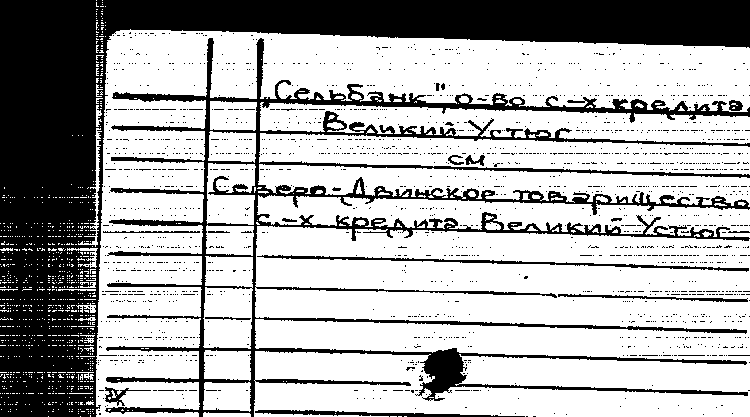 „Сельбанк", о-во с.-х. кредита.
Великий Устюг
см.
Северо-Двинское товарищество
с.-х. кредита. Великий Устюг